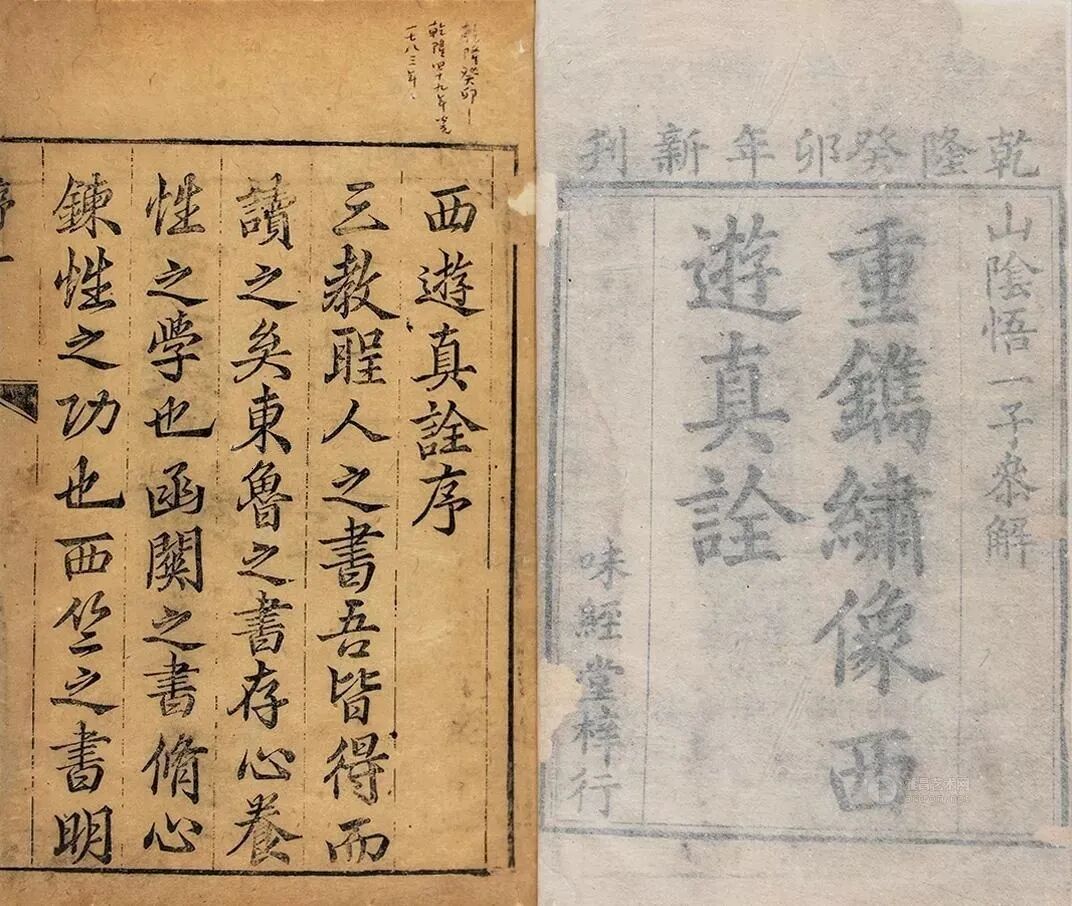 乾隆癸卯年新刊
山陰悟一子叅解
重鐫繡像西
遊真詮
味經堂梓行
乾隆癸卯—
乾隆四十九年
一七八三年。
西遊真詮序
三教聖人之書吾皆得而
讀之矣東魯之書存心養
性之学也函関之書脩心
鍊性之功也西竺之書明